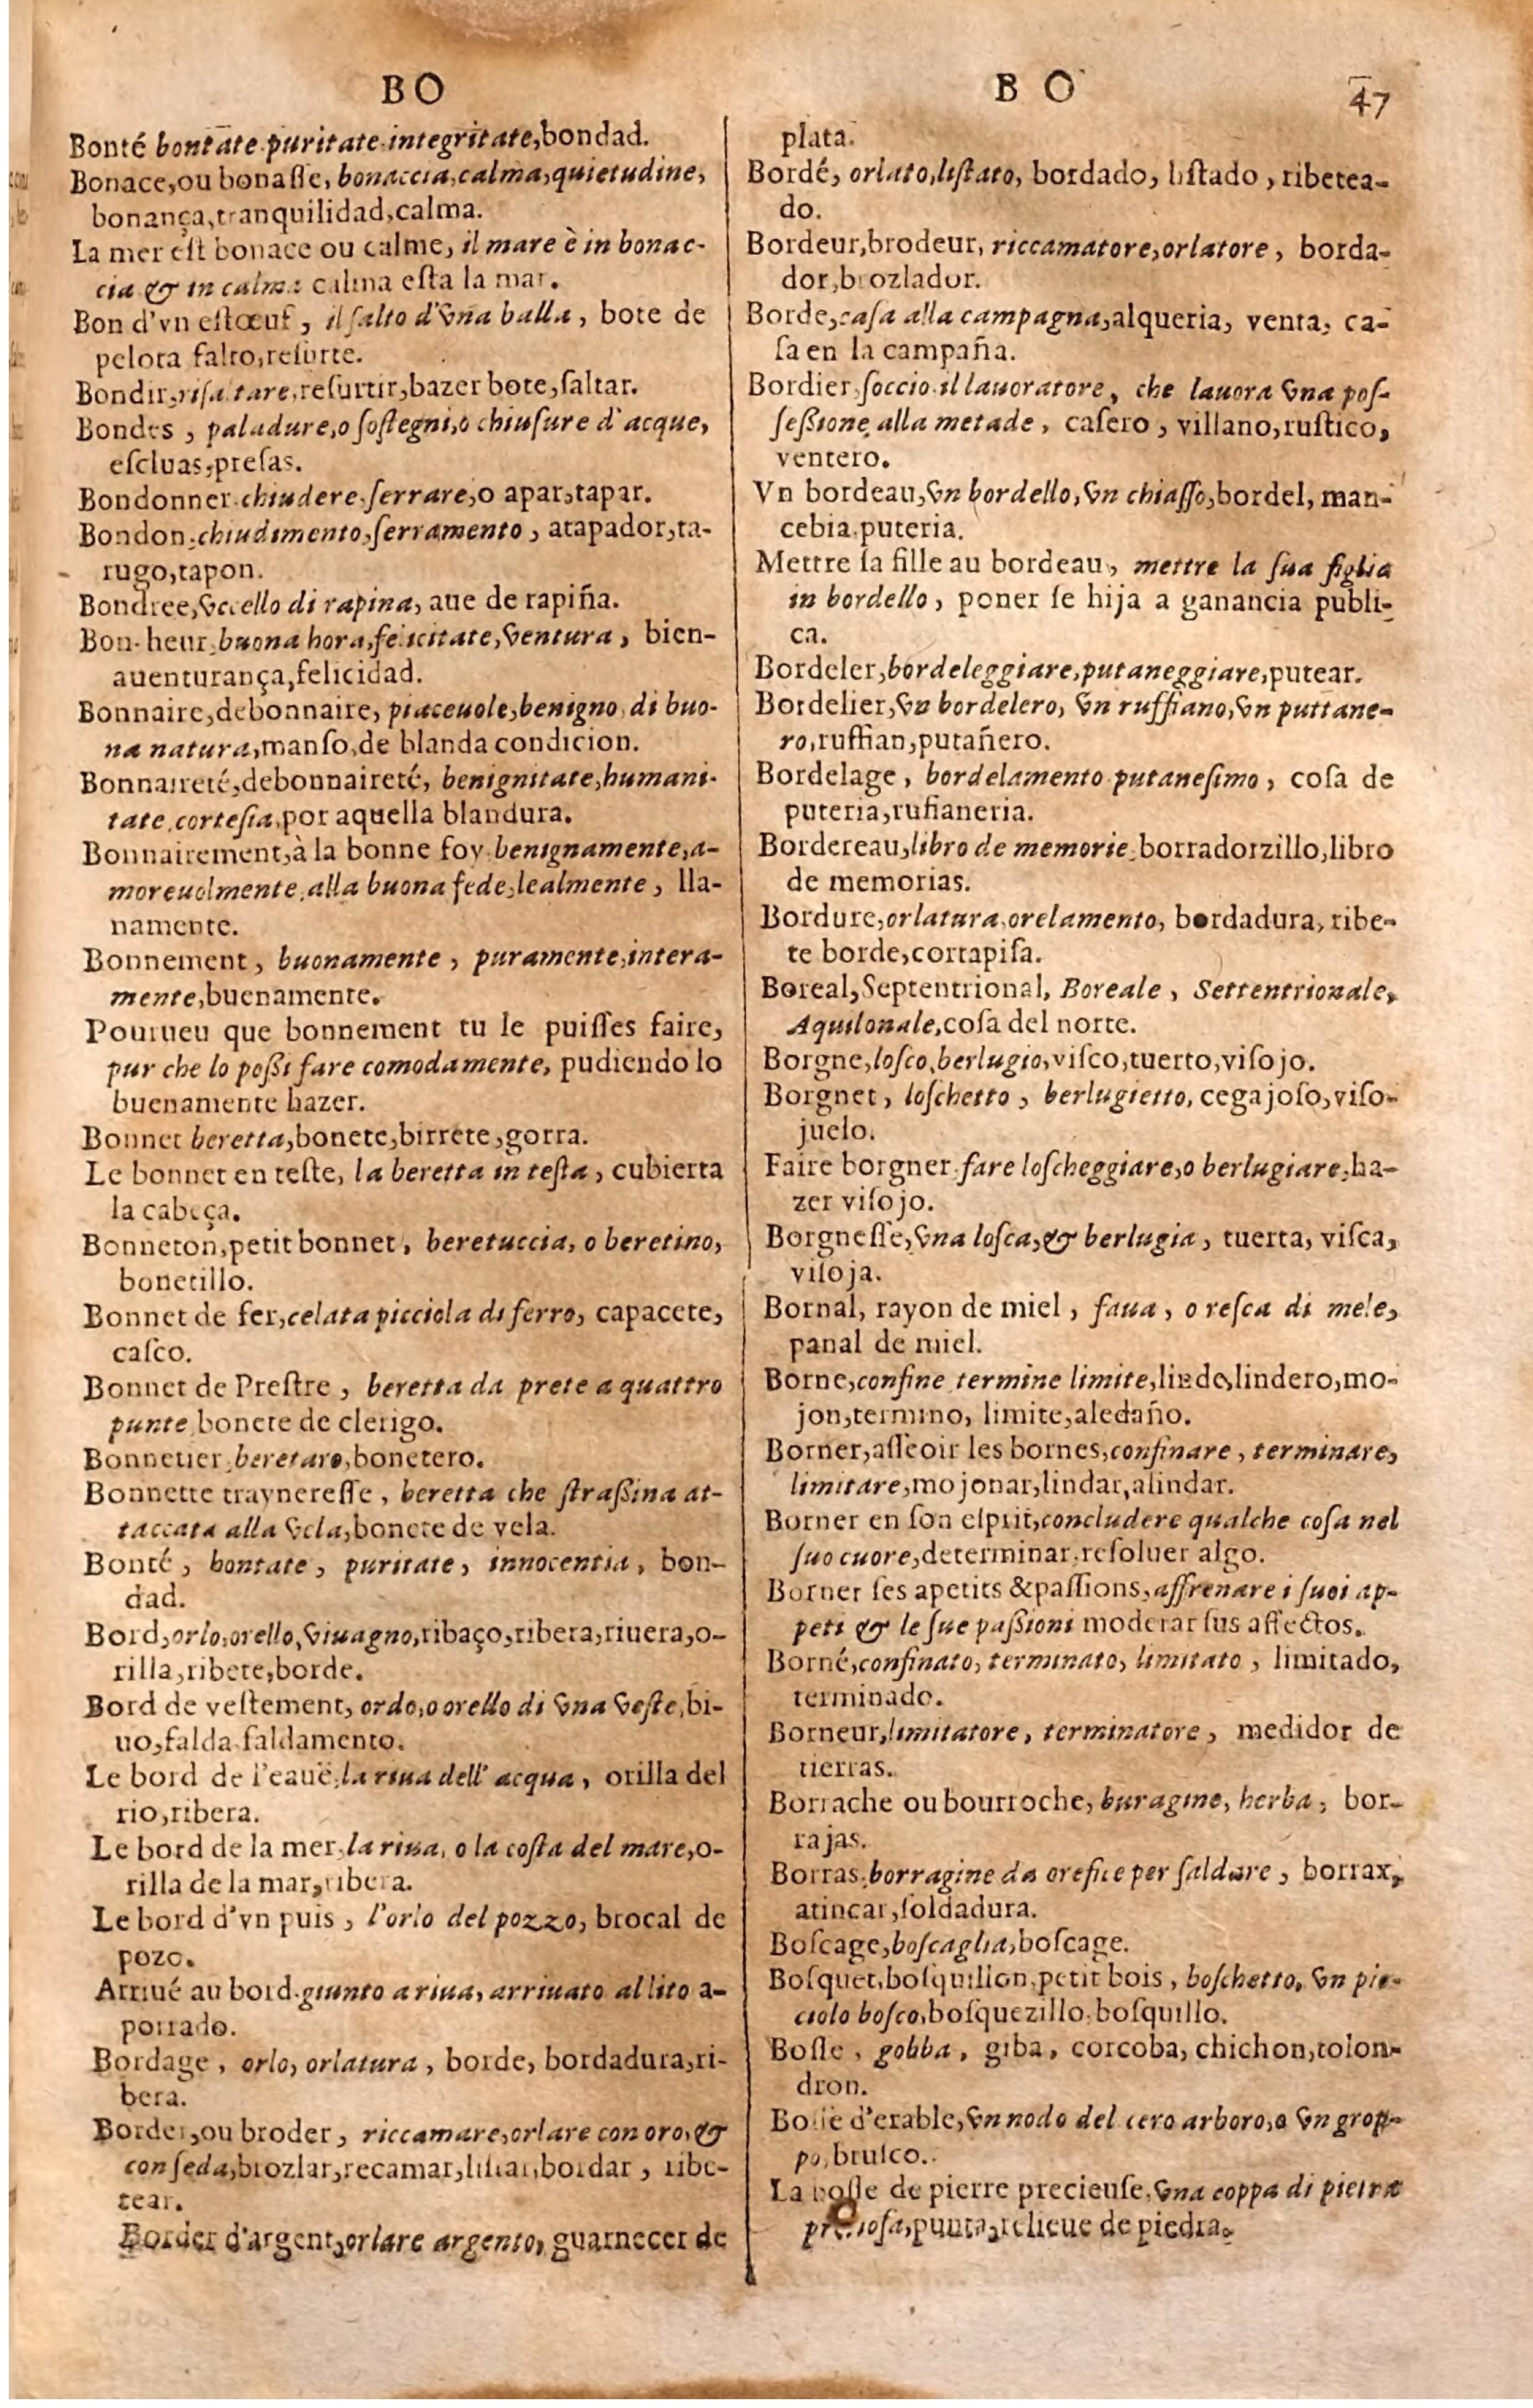 BO
Bonté bontate puritate integritate, bondad.
Bonace, ou bonaſſe, bonaccia, calma, quietudine,
bonança, tranquilidad, calma.
La mer eſt bonace ou calme, il mare è in bonac-
cia & in calma calma eſta la mar.
Bon d'vn eſtœuf, il ſalto d'vna balla, bote de
pelota ſalto, reſurte.
Bondir, riſaltare, reſurtir, bazer bote, ſaltar.
Bondes, paladure, o ſoſtegni, o chiuſure d'acque,
eſcluas, preſas.
Bondonner chiudere ſerrare, o apar, tapar.
Bondon, chiudimento, ſerramento, atapador, ta-
rugo, tapon.
Bondree, vccello di rapina, aue de rapiña.
Bon-heur, buona hora, felicitate, ventura, bien-
auenturança, felicidad.
Bonnaire, debonnaire, piaceuole, benigno, di buo-
na natura, manſo, de blanda condicion.
Bonnaireté, debonnaireté, benignitate, humani-
tate, corteſia, por aquella blandura.
Bonnairement, à la bonne foy, benignamente, a-
moreuolmente, alla buona fede, lealmente, lla-
namente.
Bonnement, buonamente, puramente, intera-
mente, buenamente.
Pourueu que bonnement tu le puiſſes faire,
pur che lo poßi fare comodamente, pudiendo lo
buenamente hazer.
Bonnet beretta, bonete, birrete, gorra.
Le bonnet en teſte, la beretta in teſta, cubierta
la cabeça.
Bonneton, petit bonnet, beretuccia, o beretino,
bonetillo.
Bonnet de fer, celata picciola di ferro, capacete,
caſco.
Bonnet de Preſtre, beretta da prete a quattro
punte, bonete de clerigo.
Bonnetier, beretaro, bonetero.
Bonnette traynereſſe, beretta che ſtraßina at-
taccata alla vela, bonete de vela.
Bonté, bontate, puritate, innocentia, bon-
dad.
Bord, orlo, orello, viuagno, ribaço, ribera, riuera, o-
rilla, ribete, borde.
Bord de veſtement, ordo, o orello di vna veſte, bi-
uo, falda faldamento.
Le bord de l'eauë, la riua dell'acqua, orilla del
rio, ribera.
Le bord de la mer, la riua, o la coſta del mare, o-
rilla de la mar, ribera.
Le bord d'vn puis, l'orlo del pozzo, brocal de
pozo.
Arriué au bord, giunto a riua, arriuato al lito a-
portado.
Bordage, orlo, orlatura, borde, bordadura, ri-
bera.
Border, ou broder, riccamare, orlare con oro, &
con ſeda, brozlar, recamar, liſtar, bordar, ribe-
tear.
Border d'argent, orlare argento, guarnecer de
B O 47
plata.
Bordé, orlato, liſtato, bordado, liſtado, ribetea-
do.
Bordeur, brodeur, riccamatore, orlatore, borda-
dor, brozlador.
Borde, caſa alla campagna, alqueria, venta, ca-
ſa en la campaña.
Bordier, ſoccio il lauoratore, che lauora vna poſ-
ſeßione alla metade, caſero, villano, ruſtico,
ventero.
Vn bordeau, vn bordello, vn chiaſſo, bordel, man-
cebia, puteria.
Mettre ſa fille au bordeau, mettre la ſua figlia
in bordello, poner ſe hija a ganancia publi-
ca.
Bordeler, bordeleggiare, putaneggiare, putear.
Bordelier, vn bordelero, vn ruffiano, vn puttane-
ro, ruffian, putañero.
Bordelage, bordelamento putaneſimo, coſa de
puteria, rufianeria.
Bordereau, libro de memorie, borradorzillo, libro
de memorias.
Bordure, orlatura, orelamento, bordadura, ribe-
te borde, cortapiſa.
Boreal, Septentrional, Boreale, Settentrionale,
Aquilonale, coſa del norte.
Borgne, loſco, berlugio, viſco, tuerto, viſojo.
Borgnet, loſchetto, berlugietto, cegajoſo, viſo-
juelo.
Faire borgner, fare loſcheggiare, o berlugiare, ha-
zer viſojo.
Borgneſſe, vna loſca, & berlugia, tuerta, viſca,
viſoja.
Bornal, rayon de miel, faua, o reſca di mele,
panal de miel.
Borne, confine termine limite, linde, lindero, mo-
jon, termino, limite, aledaño.
Borner, aſſeoir les bornes, confinare, terminare,
limitare, mojonar, lindar, alindar.
Borner en ſon eſprit, concludere qualche coſa nel
ſuo cuore, determinar, reſoluer algo.
Borner ſes apetits & paſſions, affrenare i ſuoi ap-
peti & le ſue paßioni moderar ſus affectos.
Borné, confinato, terminato, limitato, limitado,
terminado.
Borneur, limitatore, terminatore, medidor de
tierras.
Borrache ou bourroche, buragine, herba, bor-
rajas.
Borras, borragine da orefice per ſaldare, borrax,
atincar, ſoldadura.
Boſcage, boſcaglia, boſcage.
Boſquet, boſquillon, petit bois, boſchetto, vn pic-
ciolo boſco, boſquezillo, boſquillo.
Boſſe, gobba, giba, corcoba, chichon, tolon-
dron.
Boſſe d'erable, vn nodo del cero arboro, o vn grop-
po, bruſco.
La boſſe de pierre precieuſe, vna coppa di pietra
pretioſa, punta, relieue de piedra.